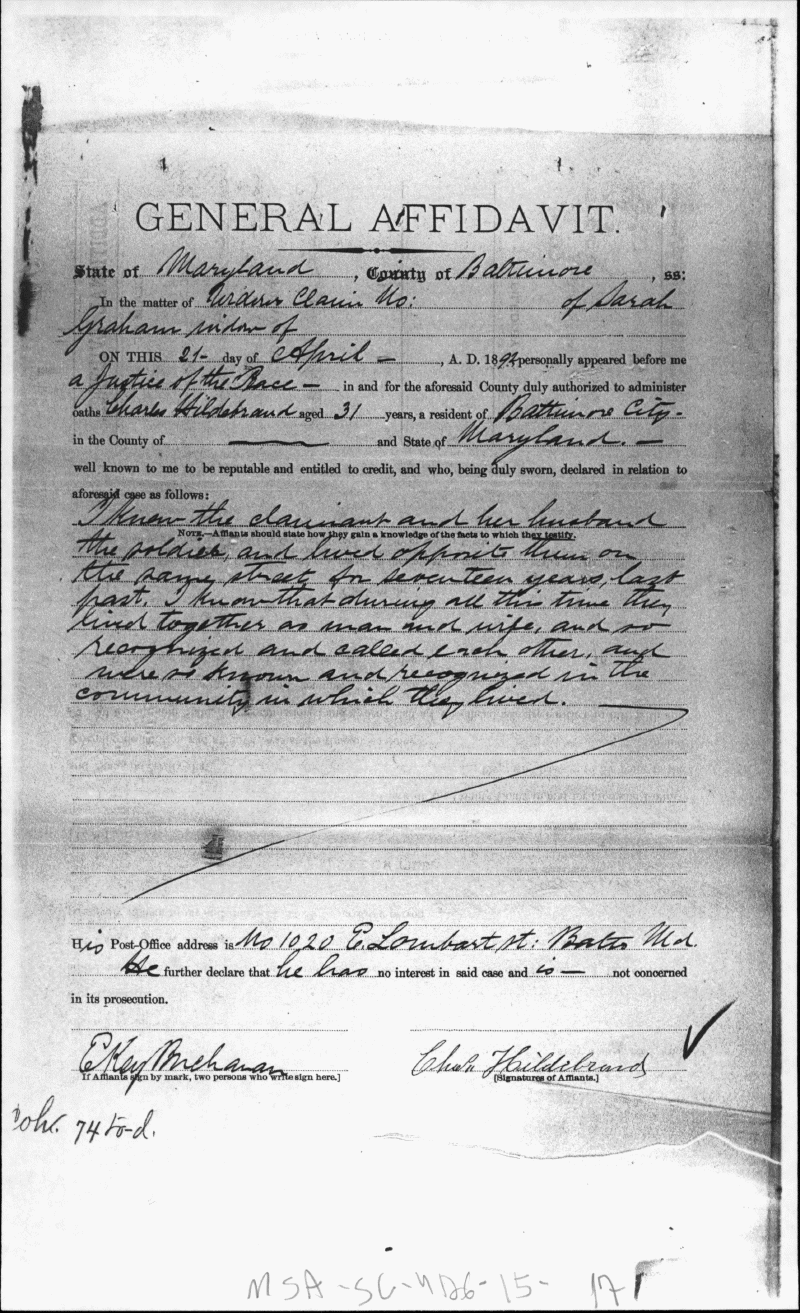 GENERAL AFFIDAVIT.
State of Maryland, County of Baltimore, ss:
In the matter of Widows Claim No: of Sarah
Graham widow of
ON THIS 21- day of April -, A. D. 1892 personally appeared before me
a Justice of the Peace - in and for the aforesaid County duly authorized to administer
oaths Charles Hildebrand aged 31 years, a resident of Baltimore City-
in the County of — and State of Maryland. -
well known to me to be reputable and entitled to credit, and who, being duly sworn, declared in relation to
aforesaid case as follows:
I knew the claimant and her husband
NOTE.—Affiants should state how they gain a knowledge of the facts to which they testify.
the soldier, and lived opposit them on
the same street for seventeen years, last
past. I know that during all this time they
lived together as man and wife, and so
recognized and called each other, and
were so known and recognized in the
community in which they lived.
His Post-Office address is No 1020 E. Lombart st: Balto Md.
He further declare that he has no interest in said case and is — not concerned
in its prosecution.
E Kay Buchanan
Chas Hildebrand
[If Affiants sign by mark, two persons who write sign here.]
[Signatures of Affiants.]
74
MSA-SC-4126-15- 17